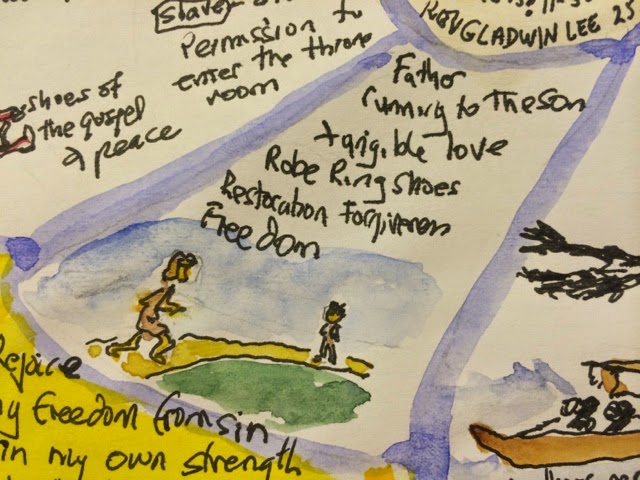 slave
Permission to
enter the throne
room
REV GLADWIN LEE 25
shoes of
the gospel
of peace
Father
running to the son
tangible love
Robe Ring shoes
Restoration Forgiveness
Freedom
Rejoice
my Freedom from sin
in my own strength